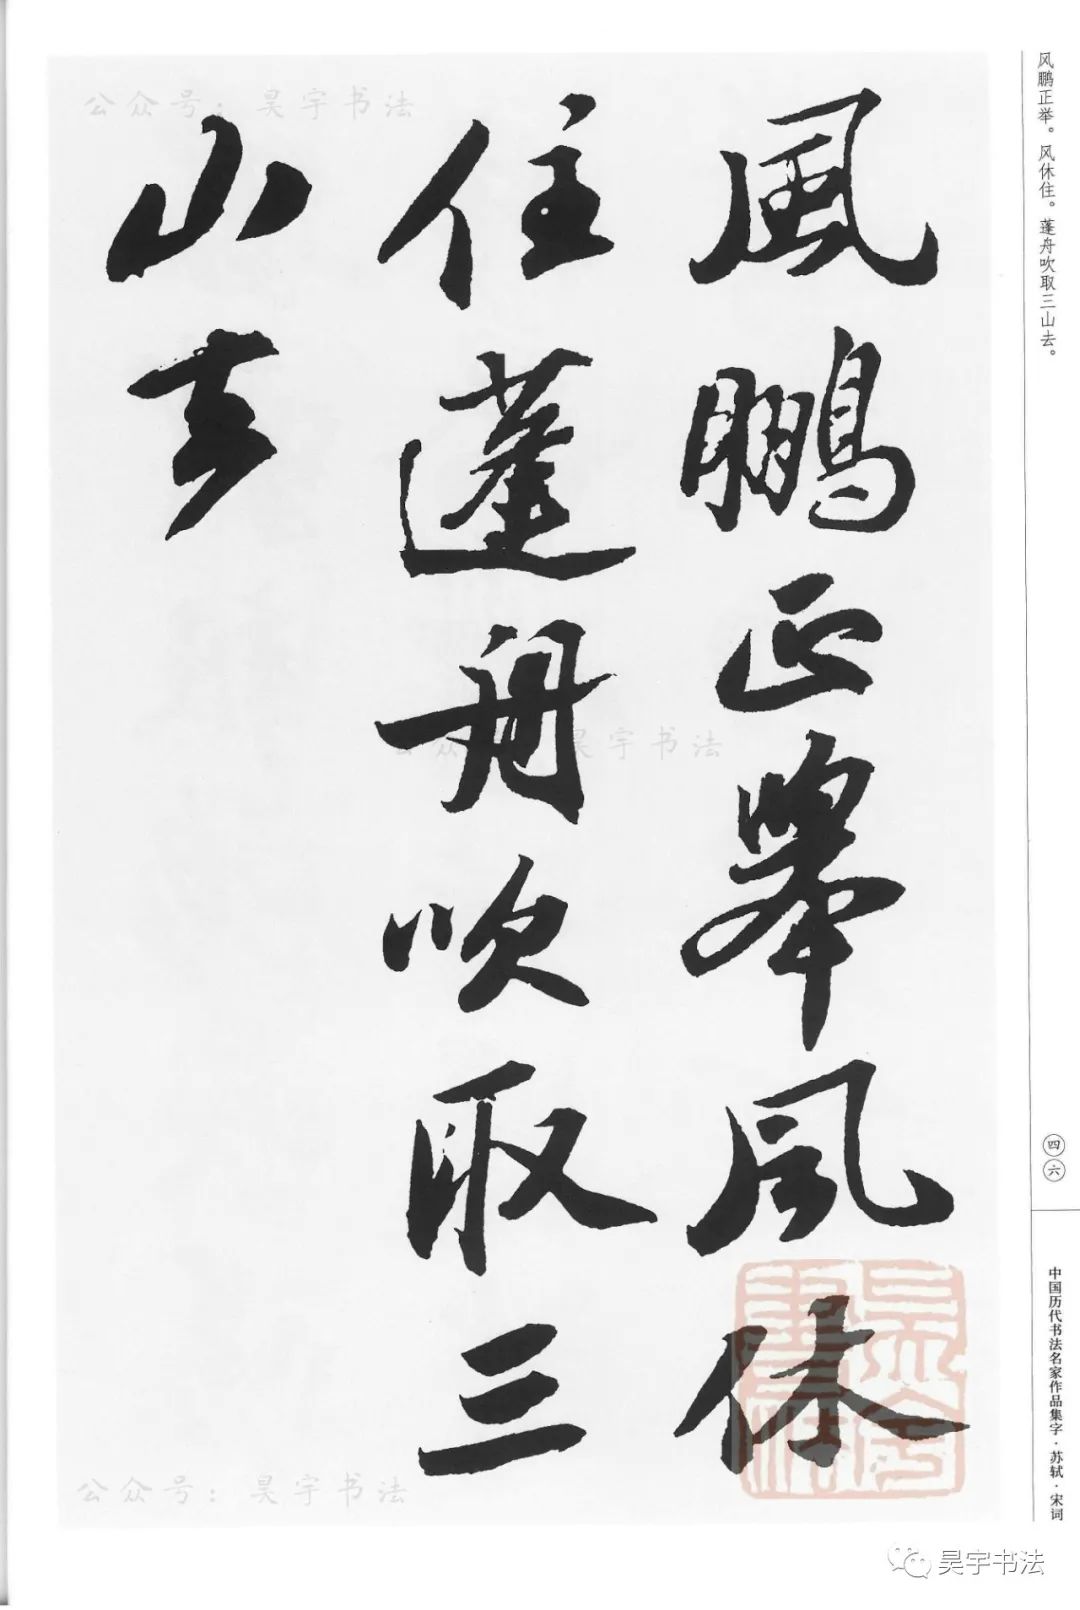 风鹏正举。风休住。蓬舟吹取三山去。
風鵬正舉風休
住蓬舟吹取三
山去
四六
中国历代书法名家作品集字·苏轼·宋词
公众号：昊宇书法
公众 昊宇书法
公众号：昊宇书法
昊宇书法
昊宇书法